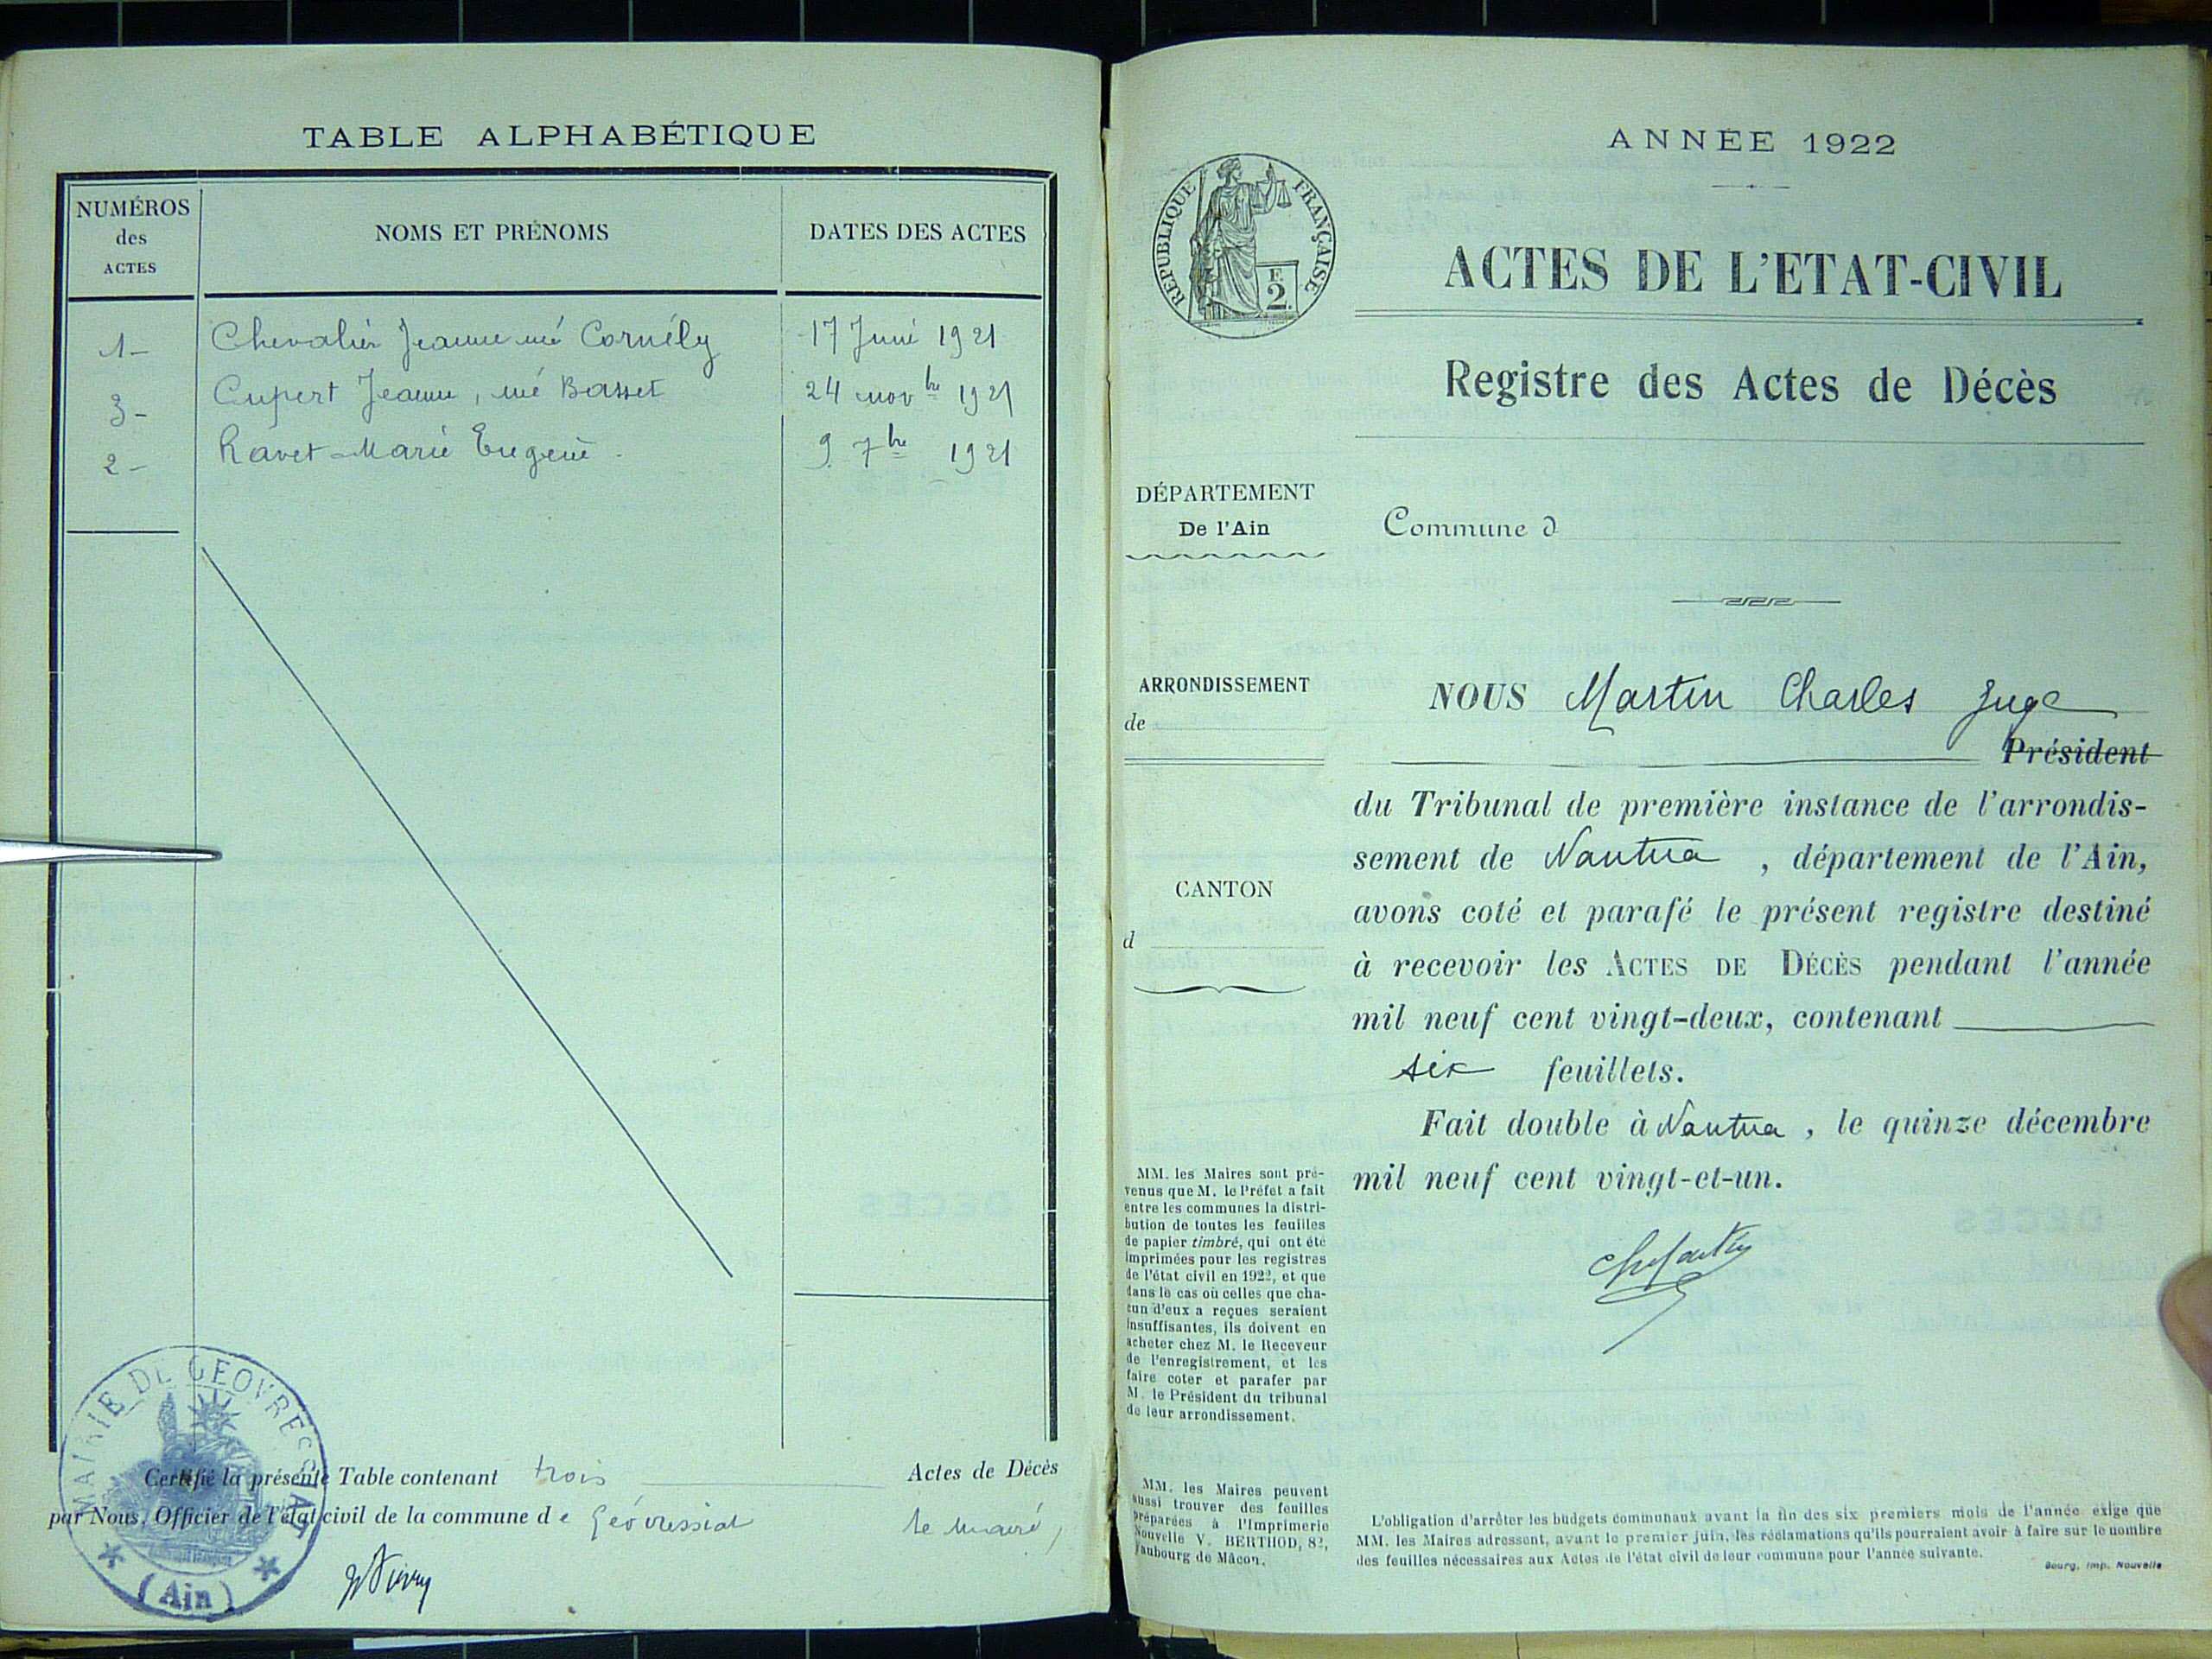 TABLE ALPHABÉTIQUE
NUMÉROS
des
ACTES
NOMS ET PRÉNOMS
DATES DES ACTES
1- Chevalier Jeanne née Cornély 17 Juin 1921
3- Cupert Jeanne, née Basset 24 novbre 1921
2- Ravet Marie Eugenie 9 7bre 1921
MAIRIE DE GEOVRESSIAT
(Ain)
Certifié la présente Table contenant trois Actes de Décès
par Nous, Officier de l'état civil de la commune de Géovressiat le maire,
ANNÉE 1922
RÉPUBLIQUE FRANÇAISE
F.
2.
ACTES DE L'ETAT-CIVIL
Registre des Actes de Décès
DÉPARTEMENT
De l'Ain
Commune d
ARRONDISSEMENT
de
NOUS Martin Charles Juge
Président
du Tribunal de première instance de l'arrondis-
sement de Nantua, département de l'Ain,
CANTON
d
avons coté et parafé le présent registre destiné
à recevoir les ACTES DE DÉCÈS pendant l'année
mil neuf cent vingt-deux, contenant
six feuillets.
Fait double à Nantua, le quinze décembre
mil neuf cent vingt-et-un.
MM. les Maires sont pré-
venus que M. le Préfet a fait
entre les communes la distri-
bution de toutes les feuilles
de papier timbré, qui ont été
imprimées pour les registres
de l'état civil en 1922, et que
dans le cas où celles que cha-
cun d'eux a reçues seraient
insuffisantes, ils doivent en
acheter chez M. le Receveur
de l'enregistrement, et les
faire coter et parafer par
M. le Président du tribunal
de leur arrondissement.
MM. les Maires peuvent
aussi trouver des feuilles
préparées à l'Imprimerie
Nouvelle V. BERTHOD, 82,
Faubourg de Mâcon.
L'obligation d'arrêter les budgets communaux avant la fin des six premiers mois de l'année exige que
MM. les Maires adressent, avant le premier juin, les réclamations qu'ils pourraient avoir à faire sur le nombre
des feuilles nécessaires aux Actes de l'état civil de leur commune pour l'année suivante.
Bourg, Imp. Nouvelle